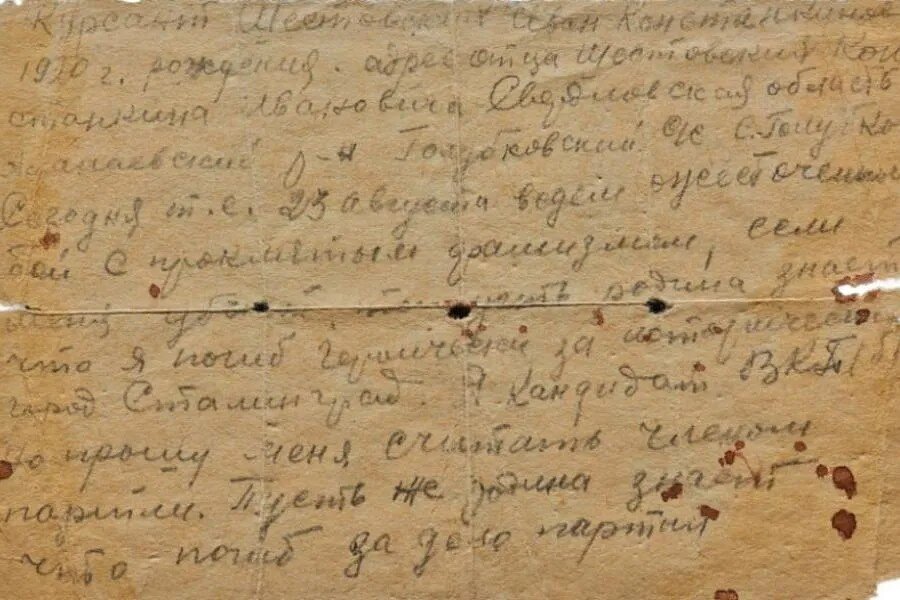 Курсант Шестовских Иван Константинов
1920 г. рождения. адрес отца Шестовский Кон
стантина Ивановича Свердловская область
Алапаевский р-н Голубковский с/с С. Голубко
Сегодня т.е. 23 августа ведем ожесточенный
бой с проклятым фашизмом, если
меня убьют, то пусть родина знает
что я погиб героически за исторический
город Сталинград. Я кандидат ВКП(б)
то прошу меня считать членом
партии. Пусть же родина знает
что погиб за дело партии